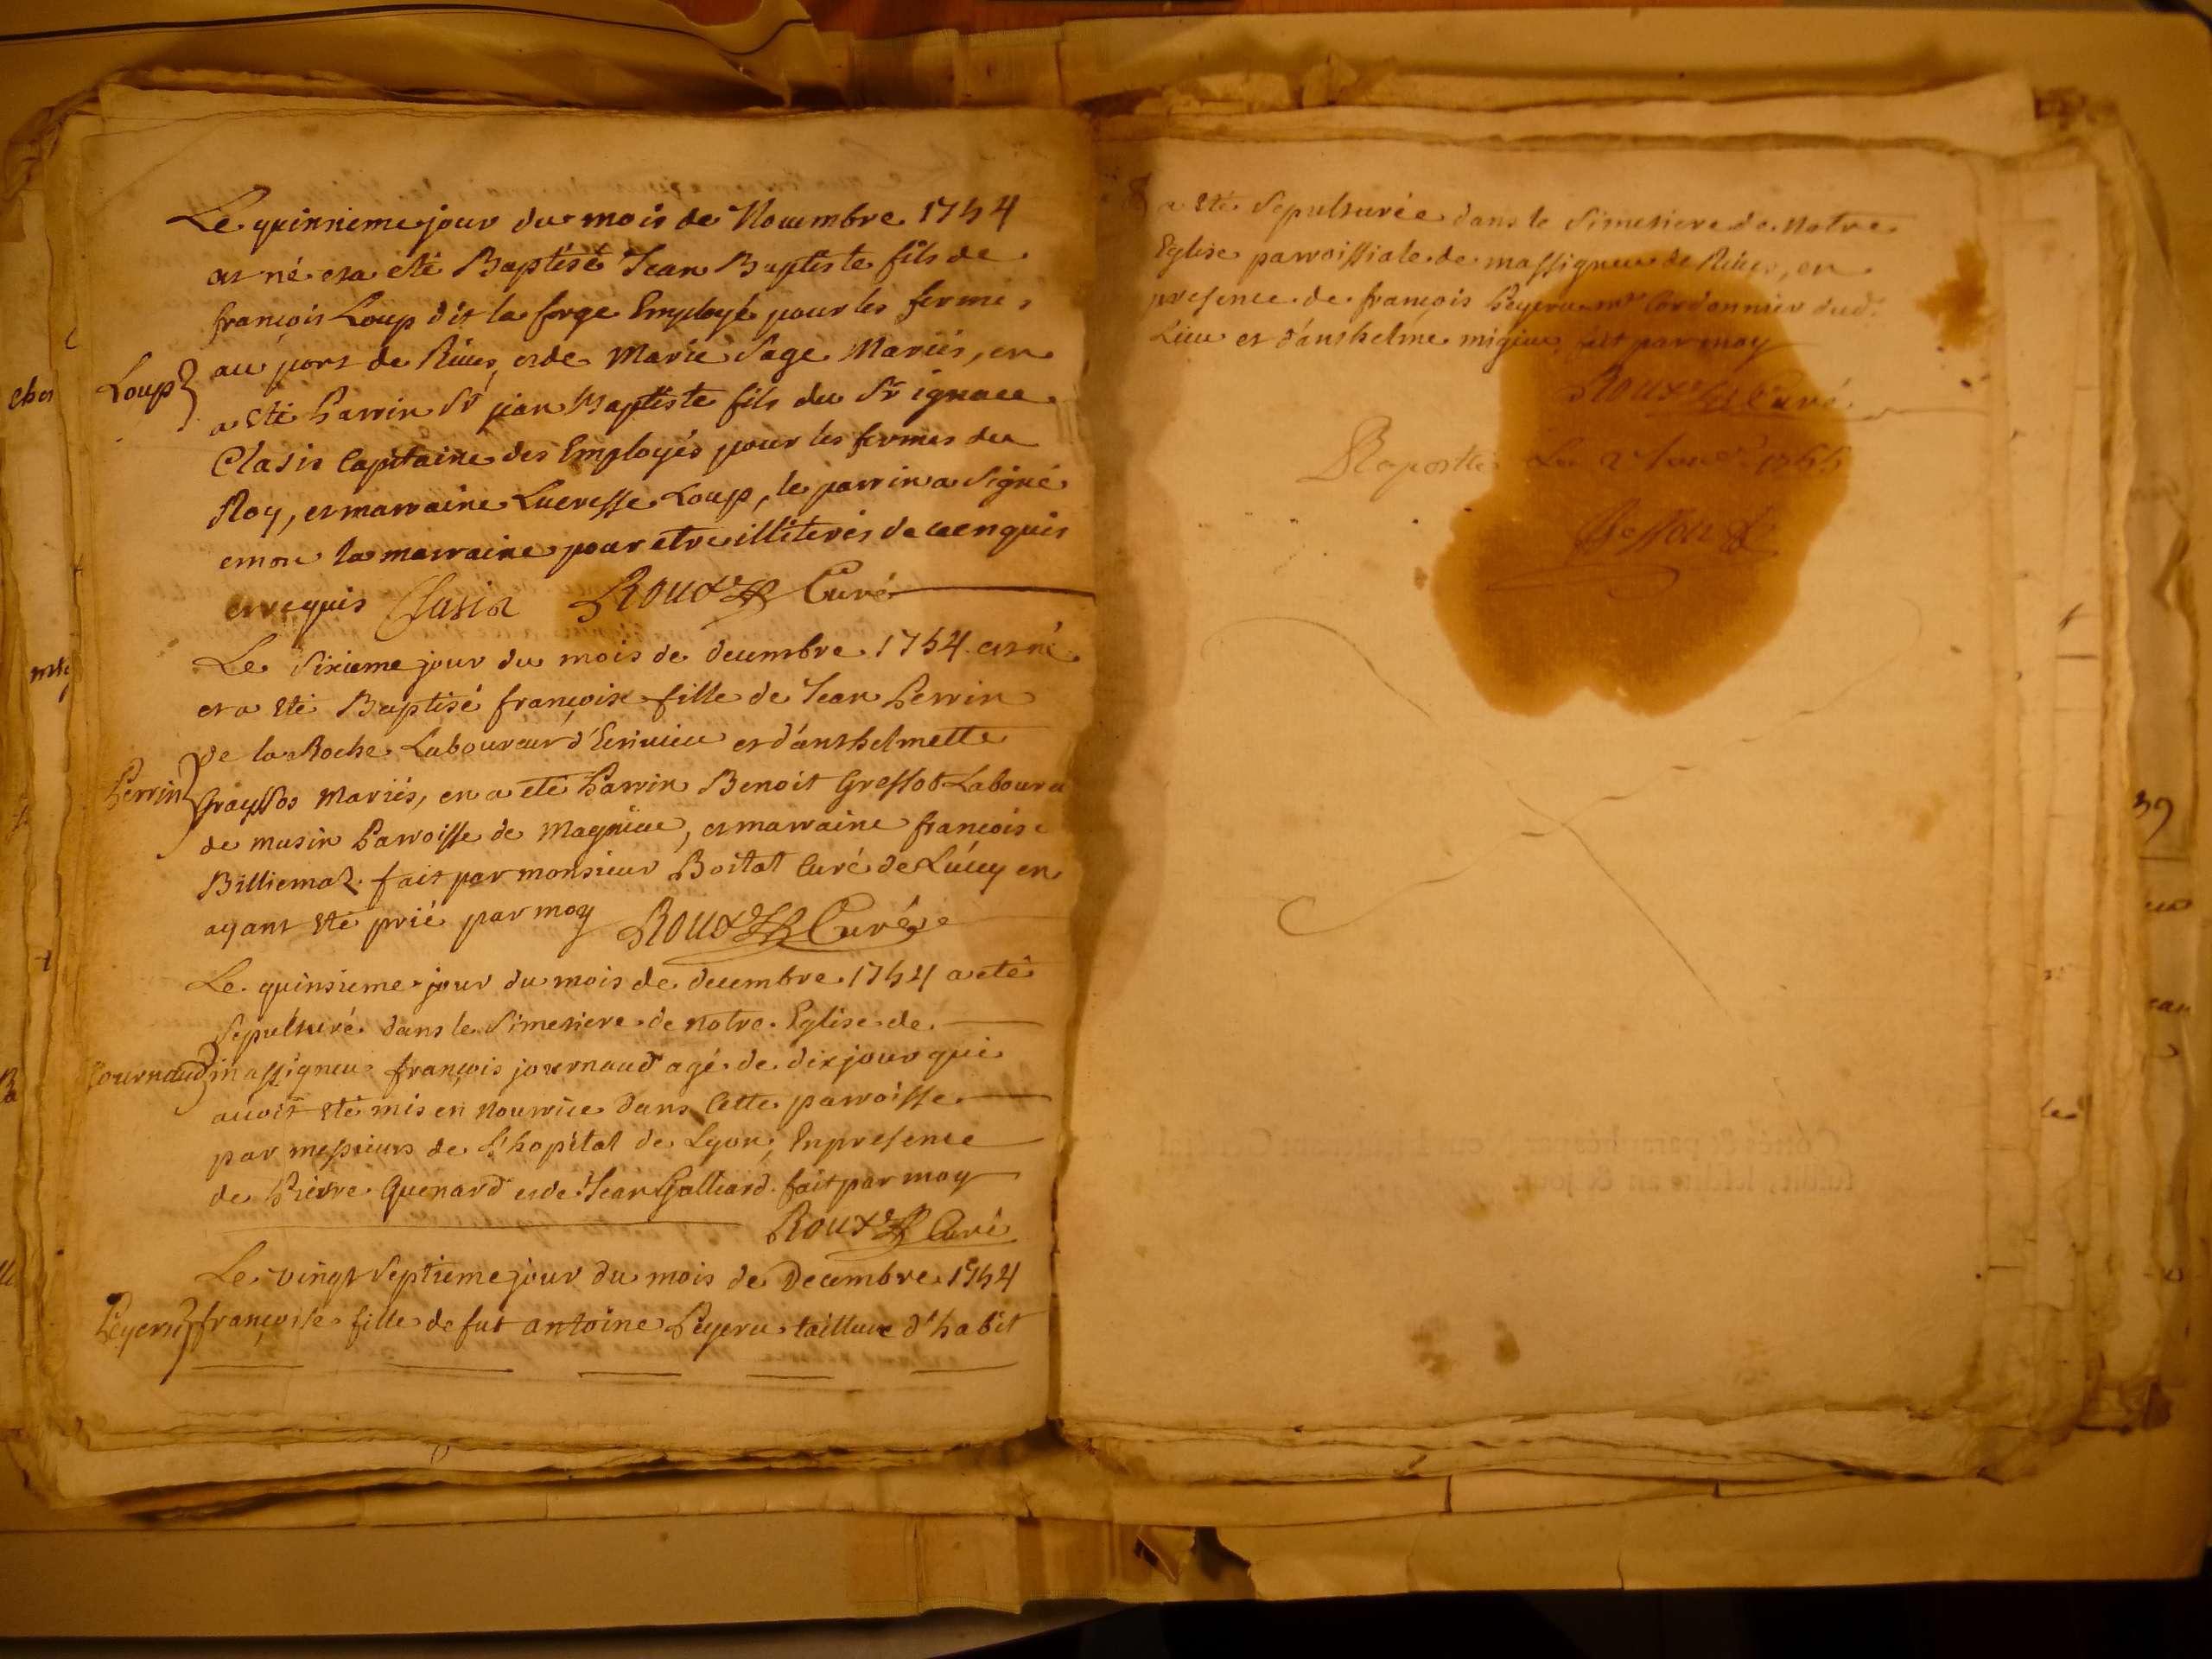 Le quinsieme jour du mois de Novembre 1754
est né et a eté Baptisé Jean Baptiste fils de
françois Loup dit la forge Employé pour les fermes
Loup au port de Rives, et de Marie Sage Mariés, en
a eté Parrin Sr jean Baptiste fils du Sr ignace
Clasis Capitaine des Employés pour les fermes du
Roy, et marraine Lucresse Loup, le parrin a signé
et non la marraine pour etre illiterés de ce enquis
et requis Clasis Roux Curé
Le Sixieme jour du mois de decembre 1754 est né
et a eté Baptisé françoise fille de Jean Perrin
de la Roche Laboureur d'Ecrivieu et d'anthelmette
Perrin Grayssos Mariés, en a eté Parrin Benoit Gressot Laboureu
de musin Parroisse de Magnieu, et marraine françoise
Billiemaz fait par monsieur Boitat Curé de Lucey en
ayant eté prié par moy Roux Curé
Le quinsieme jour du mois de decembre 1754 a eté
Sepulturé dans le Simetiere de notre Eglise de
Journaud massigneu françois journaud agé de dix jour qui
avoit eté mis en Nourrice dans Cette parroisse
par messieurs de L'hopital de Lyon, En presence
de Pierre Quenard et de Jean Galliard fait par moy
Roux Curé
Le vingt Septieme jour du mois de Decembre 1754
Peyeru françoise fille de fut antoine Peyeru tailleur d'habit
a eté Sepulturée dans le Simetiere de Notre
Eglise parroissiale de massigneu de Rives, en
presence de françois Peyeru Mtre Cordonnier dud.
Lieu et d'anthelme migieu, fait par moy
Roux Curé
39